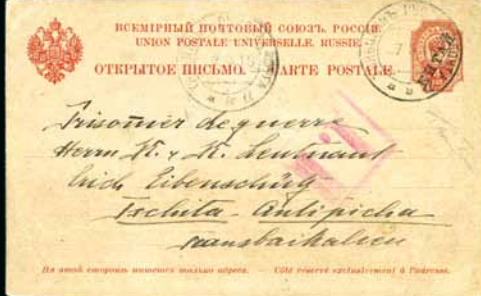 ВСЕМІРНЫЙ ПОЧТОВЫЙ СОЮЗЪ. РОССІЯ
UNION POSTALE UNIVERSELLE. RUSSIE
ОТКРЫТОЕ ПИСЬМО. — CARTE POSTALE
КИТАЙ
Prisonnier de guerre
Herrn K. u. K. Leutnant
Erich Eibenschütz
Tschita - Antipicha
Transbaikalien
На этой сторонѣ пишется только адресъ. — Côté réservé exclusivement à l'adresse.